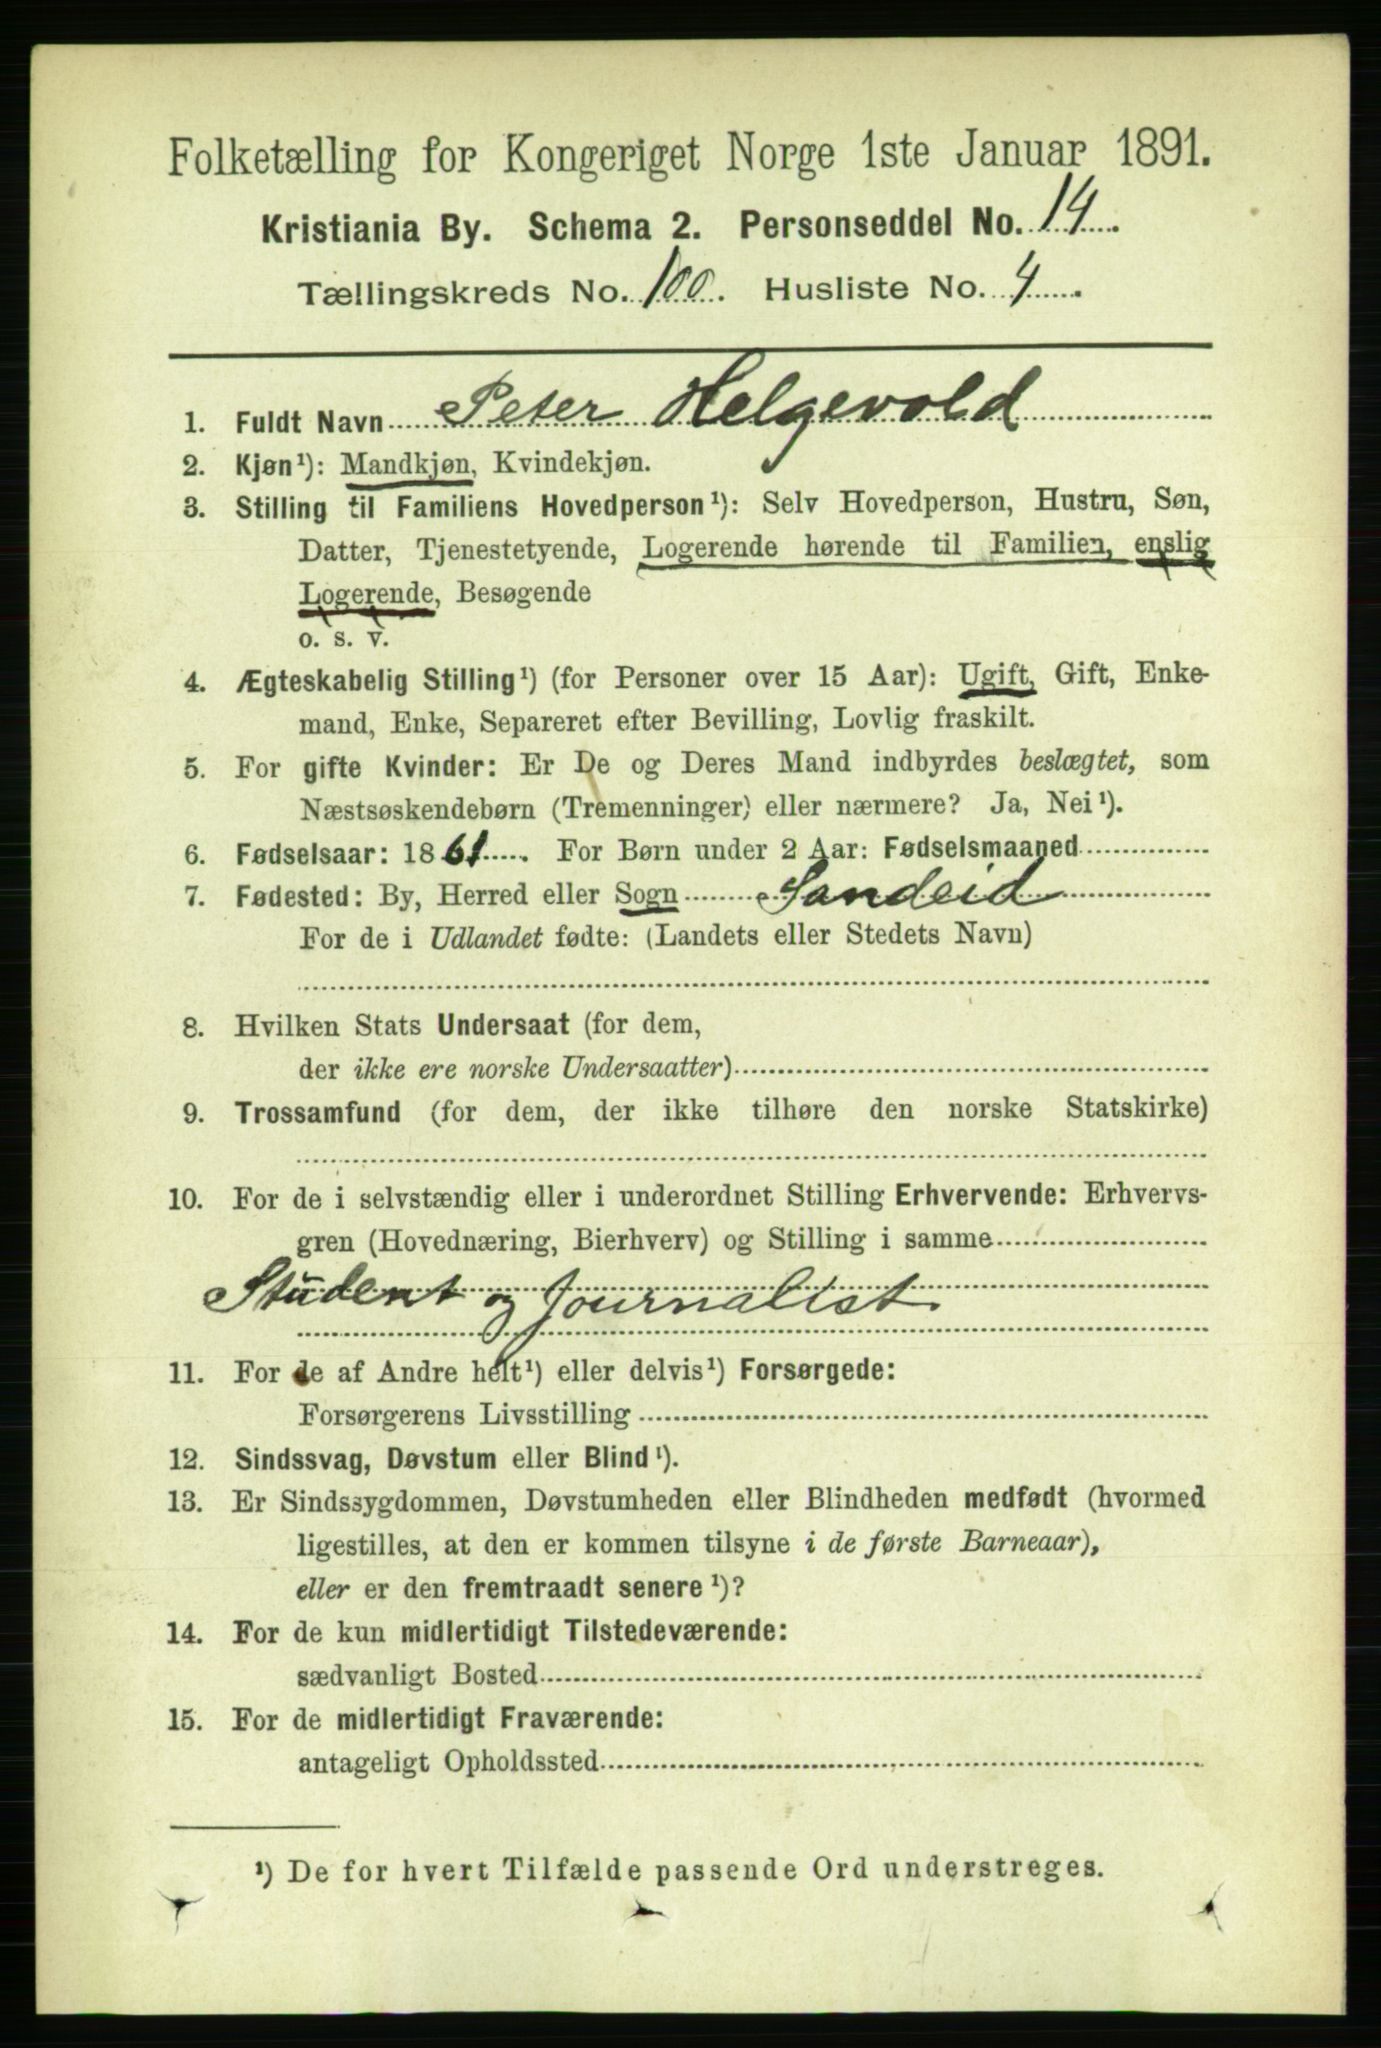 Folketælling for Kongeriget Norge 1ste Januar 1891.
Kristiania By. Schema 2. Personseddel No. 14.
Tællingskreds No. 100. Husliste No. 4.
1. Fuldt Navn Peter Helgevold
2. Kjøn¹): Mandkjøn, Kvindekjøn.
3. Stilling til Familiens Hovedperson¹): Selv Hovedperson, Hustru, Søn,
Datter, Tjenestetyende, Logerende hørende til Familien, enslig
Logerende, Besøgende
o. s. v.
4. Ægteskabelig Stilling¹) (for Personer over 15 Aar): Ugift, Gift, Enke-
mand, Enke, Separeret efter Bevilling, Lovlig fraskilt.
5. For gifte Kvinder: Er De og Deres Mand indbyrdes beslægtet, som
Næstsøskendebørn (Tremenninger) eller nærmere? Ja, Nei¹).
6. Fødselsaar: 1861. For Børn under 2 Aar: Fødselsmaaned
7. Fødested: By, Herred eller Sogn Sandeid
For de i Udlandet fødte: (Landets eller Stedets Navn)
8. Hvilken Stats Undersaat (for dem,
der ikke ere norske Undersaatter)
9. Trossamfund (for dem, der ikke tilhøre den norske Statskirke)
10. For de i selvstændig eller i underordnet Stilling Erhvervende: Erhvervs-
gren (Hovednæring, Bierhverv) og Stilling i samme
Student og Journalist
11. For de af Andre helt¹) eller delvis¹) Forsørgede:
Forsørgerens Livsstilling
12. Sindssvag, Døvstum eller Blind¹).
13. Er Sindssygdommen, Døvstumheden eller Blindheden medfødt (hvormed
ligestilles, at den er kommen tilsyne i de første Barneaar),
eller er den fremtraadt senere¹)?
14. For de kun midlertidigt Tilstedeværende:
sædvanligt Bosted
15. For de midlertidigt Fraværende:
antageligt Opholdssted
¹) De for hvert Tilfælde passende Ord understreges.